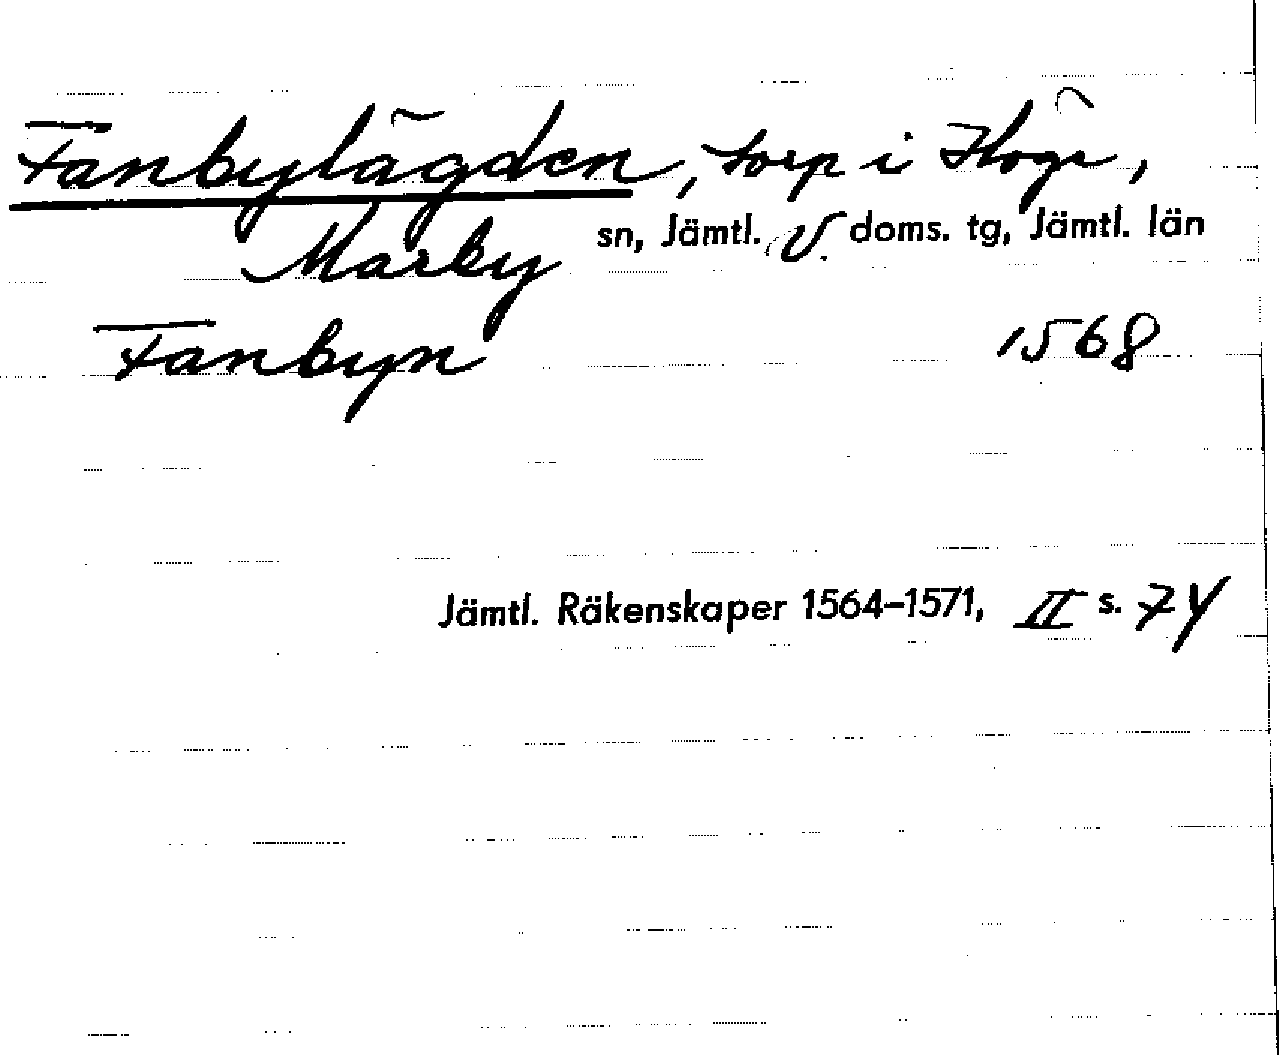 Fanbylägden, torp i Höge,
Marby sn, Jämtl. v. doms. tg, Jämtl. län
Fanbyn 1568
Jämtl. Räkenskaper 1564–1571, II s. 74